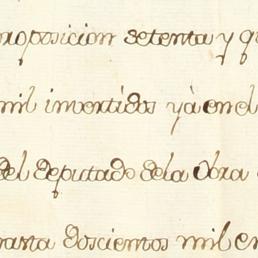 proposicion setenta y qu
mil invertidos yá en el
del deputado dela obra
rasta doscientos mil en